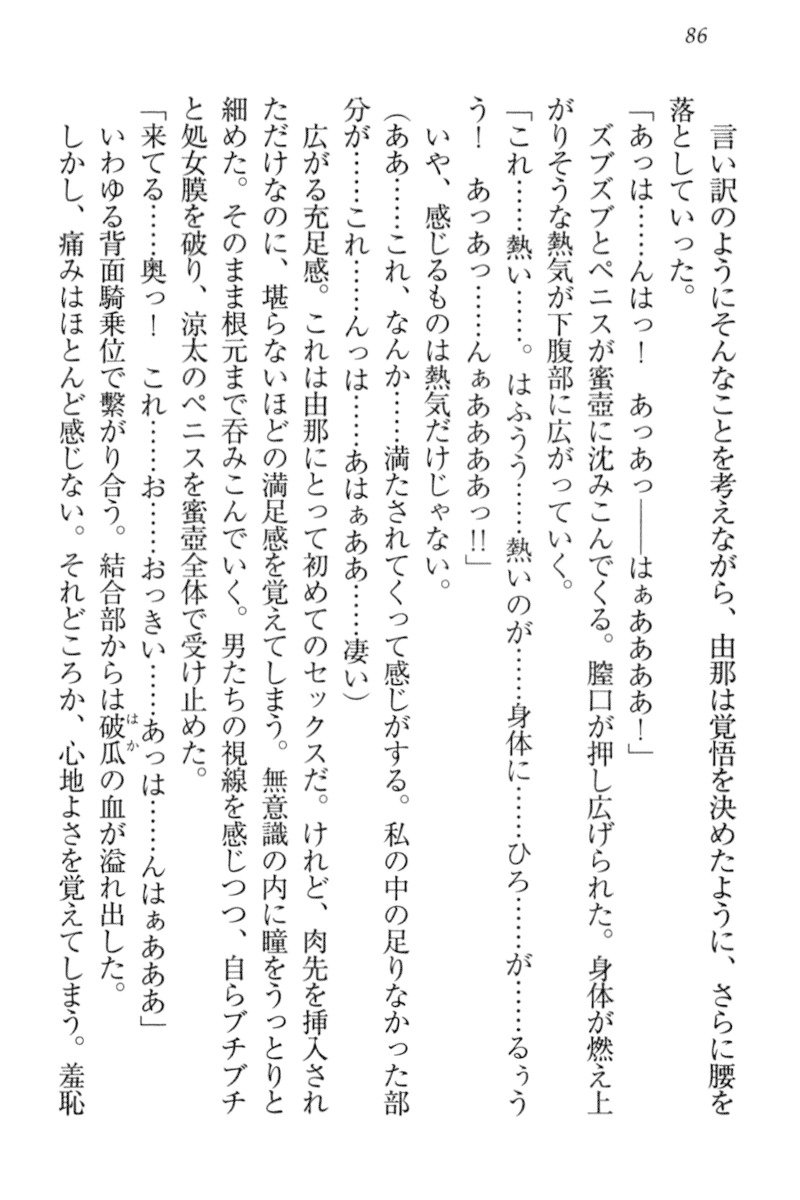 86
言い訳のようにそんなことを考えながら、由那は覚悟を決めたように、さらに腰を
落としていった。
「あっは……んはっ！　あっあっ――はぁあああ！」
ズブズブとペニスが蜜壺に沈みこんでくる。膣口が押し広げられた。身体が燃え上
がりそうな熱気が下腹部に広がっていく。
「これ……熱い……。はふうう……熱いのが……身体に……ひろ……が……るぅう
う！　あっあっ……んぁああああっ!!」
いや、感じるものは熱気だけじゃない。
（ああ……これ、なんか……満たされてくって感じがする。私の中の足りなかった部
分が……これ……んっは……あはぁああ……凄い）
広がる充足感。これは由那にとって初めてのセックスだ。けれど、肉先を挿入され
ただけなのに、堪らないほどの満足感を覚えてしまう。無意識の内に瞳をうっとりと
細めた。そのまま根元まで呑みこんでいく。男たちの視線を感じつつ、自らブチブチ
と処女膜を破り、涼太のペニスを蜜壺全体で受け止めた。
「来てる……奥っ！　これ……お……おっきい……あっは……んはぁあああ」
いわゆる背面騎乗位で繋がり合う。結合部からは破瓜はかの血が溢れ出した。
しかし、痛みはほとんど感じない。それどころか、心地よさを覚えてしまう。羞恥